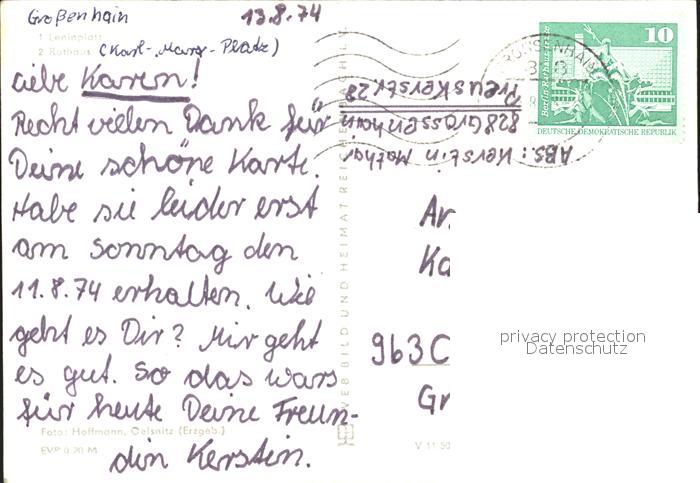 Großenhain 13.8.74
1 Leninplatz
2 Rathaus (Karl-Marx-Platz)
Liebe Karen!
Recht vielen Dank für
Deine schöne Karte.
Habe sie leider erst
am Sonntag den
11.8.74 erhalten. Wie
geht es Dir? Mir geht
es gut. So das wars
für heute Deine Freun-
din Kerstin.
Foto: Hoffmann, Oelsnitz (Erzgeb.)
EVP 0,20 M
V 11 50
VEB BILD UND HEIMAT REICHENBACH I. V.
ABS.: Kerstin
828 Grossenhain
Preuskerstr. 28
10
Berlin, Rathausstraße
DEUTSCHE DEMOKRATISCHE REPUBLIK
GROSSENHAIN
An
Ka
963 C
Gr
privacy protection
Datenschutz